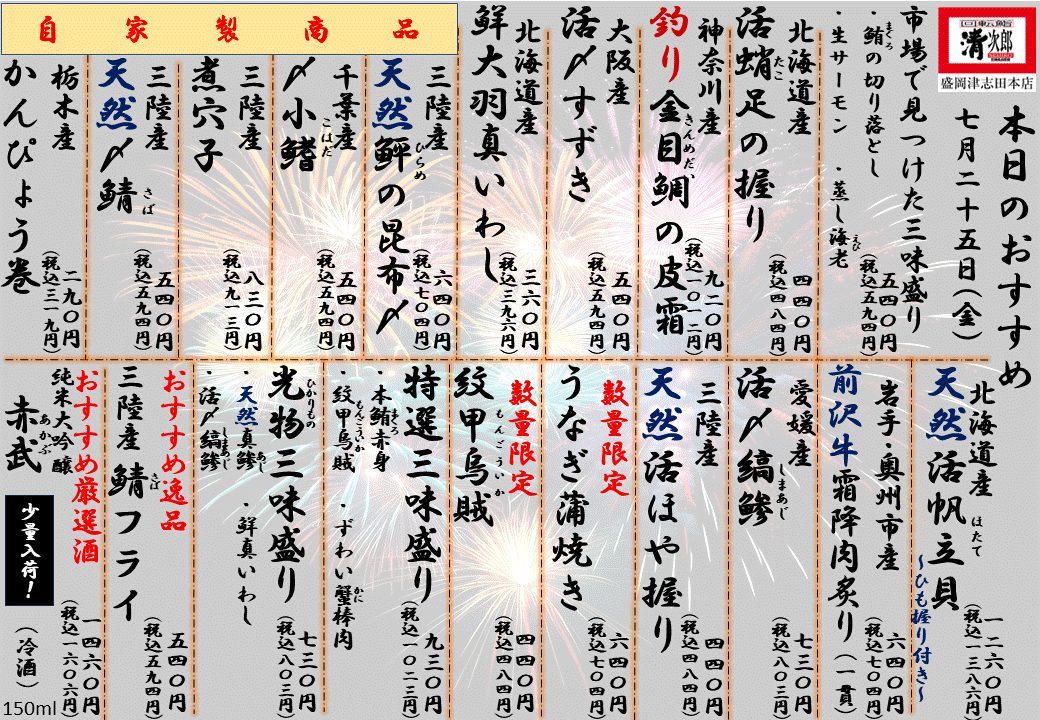 回転鮨
清次郎
盛岡津志田本店
本日のおすすめ
七月二十五日（金）
市場で見つけた三味盛り
・鮪の切り落とし
まぐろ
・生サーモン ・蒸し海老
えび
五四〇円
（税込五九四円）
北海道産
活蛸足の握り
たこ
四四〇円
（税込四八四円）
神奈川産
釣り金目鯛の皮霜
きんめだい
九二〇円
（税込一〇一二円）
大阪産
活〆すずき
五四〇円
（税込五九四円）
北海道産
鮮大羽真いわし
三六〇円
（税込三九六円）
自家製商品
三陸産
天然鮃の昆布〆
ひらめ
六四〇円
（税込七〇四円）
千葉産
〆小鰭
こはだ
五四〇円
（税込五九四円）
三陸産
煮穴子
八三〇円
（税込九一三円）
三陸産
天然〆鯖
さば
五四〇円
（税込五九四円）
栃木産
かんぴょう巻
二九〇円
（税込三一九円）
北海道産
天然活帆立貝
ほたて
～ひも握り付き～
一二六〇円
（税込一三八六円）
岩手・奥州市産
前沢牛霜降肉炙り（一貫）
六四〇円
（税込七〇四円）
愛媛産
活〆縞鯵
しまあじ
七三〇円
（税込八〇三円）
三陸産
天然活ほや握り
四四〇円
（税込四八四円）
数量限定
うなぎ蒲焼き
六四〇円
（税込七〇四円）
数量限定
紋甲烏賊
もんごういか
四四〇円
（税込四八四円）
特選三味盛り
・本鮪赤身
まぐろ
・紋甲烏賊 ・ずわい蟹棒肉
もんごういか
かに
九三〇円
（税込一〇二三円）
光物三味盛り
ひかりもの
・天然真鯵 ・鮮真いわし
あじ
・活〆縞鯵
しまあじ
七三〇円
（税込八〇三円）
おすすめ逸品
三陸産 鯖フライ
さば
五四〇円
（税込五九四円）
おすすめ厳選酒
純米大吟醸
赤武
あかぶ
少量入荷！
（冷酒）
一四六〇円
（税込一六〇六円）
150ml